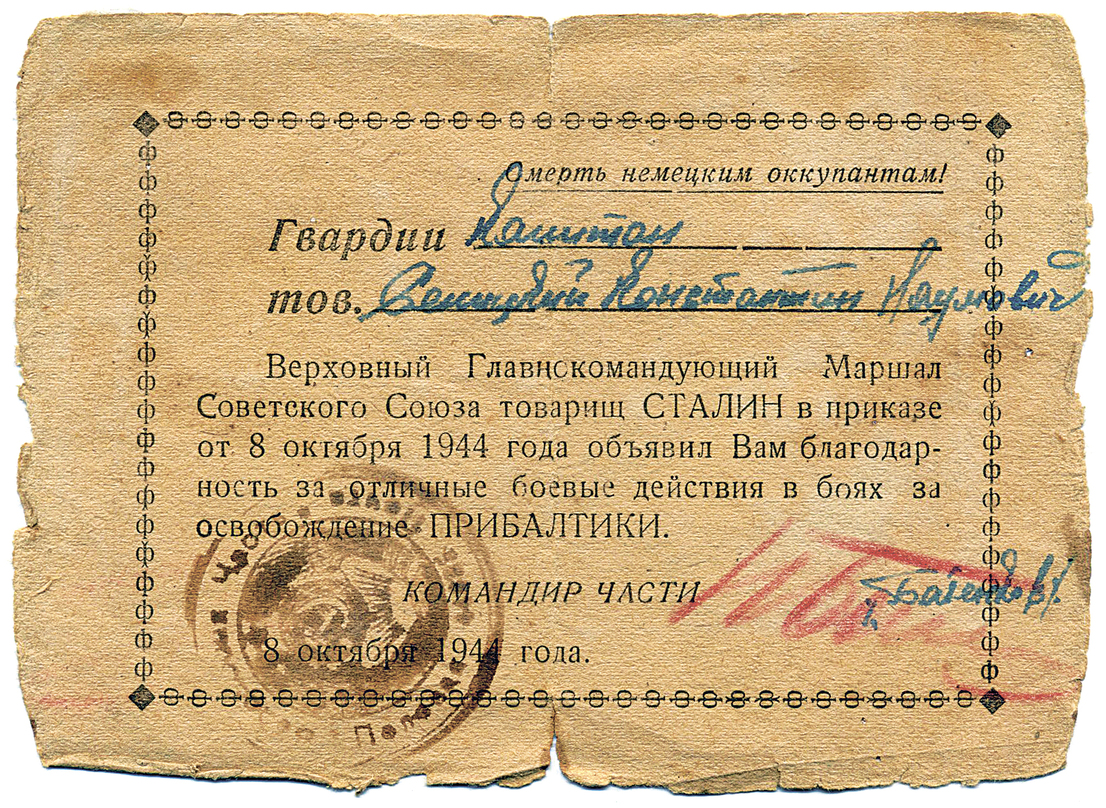 Смерть немецким оккупантам!
Гвардии Капитан
тов. Константин Наумович
Верховный Главнокомандующий Маршал
Советского Союза товарищ СТАЛИН в приказе
от 8 октября 1944 года объявил Вам благодар-
ность за отличные боевые действия в боях за
освобождение ПРИБАЛТИКИ.
КОМАНДИР ЧАСТИ
8 октября 1944 года.